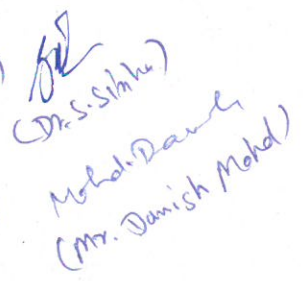 (Dr. S. Sinha)
Mohd. Danish
(Mr. Danish Mohd)